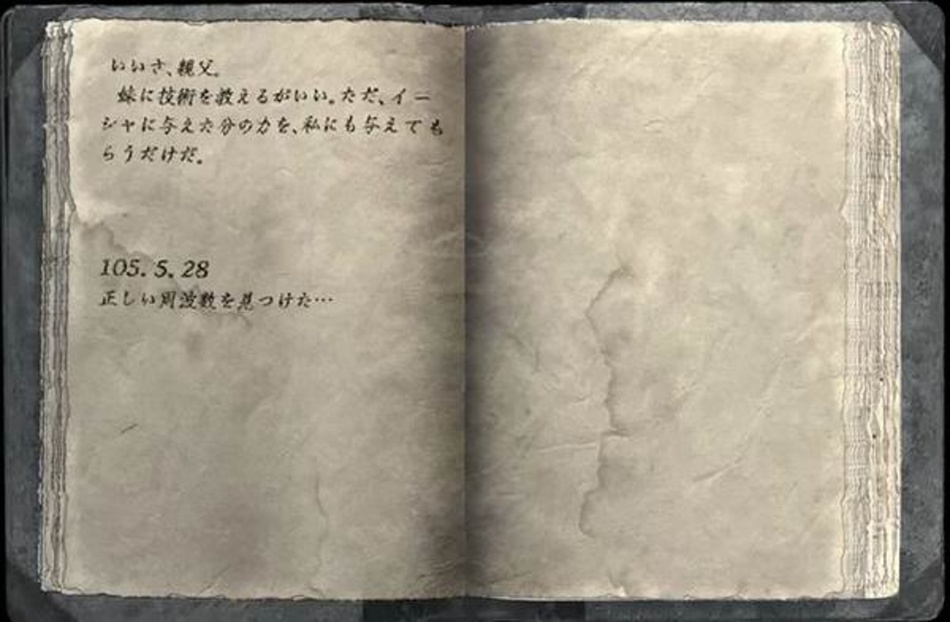 いいさ、親父。
妹に技術を教えるがいい。ただ、イー
シャに与えた分の力を、私にも与えても
らうだけだ。
105.5.28
正しい周波数を見つけた…